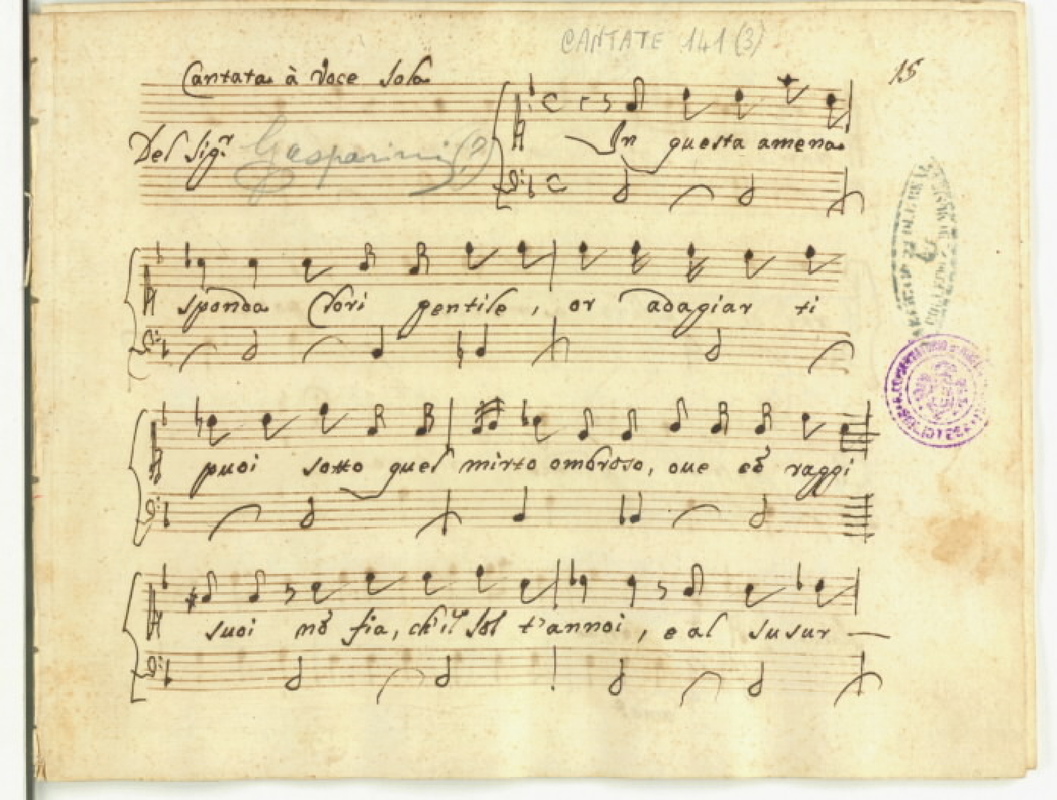 CANTATE 141 (3)
Cantata à Voce sola
15
Del Sigr. Gasparini (?)
In questa amena
sponda Clori gentile, or adagiar ti
puoi sotto quel mirto ombroso, oue cõ raggi
suoi nõ fia, ch'il Sol t'annoi, e al susur